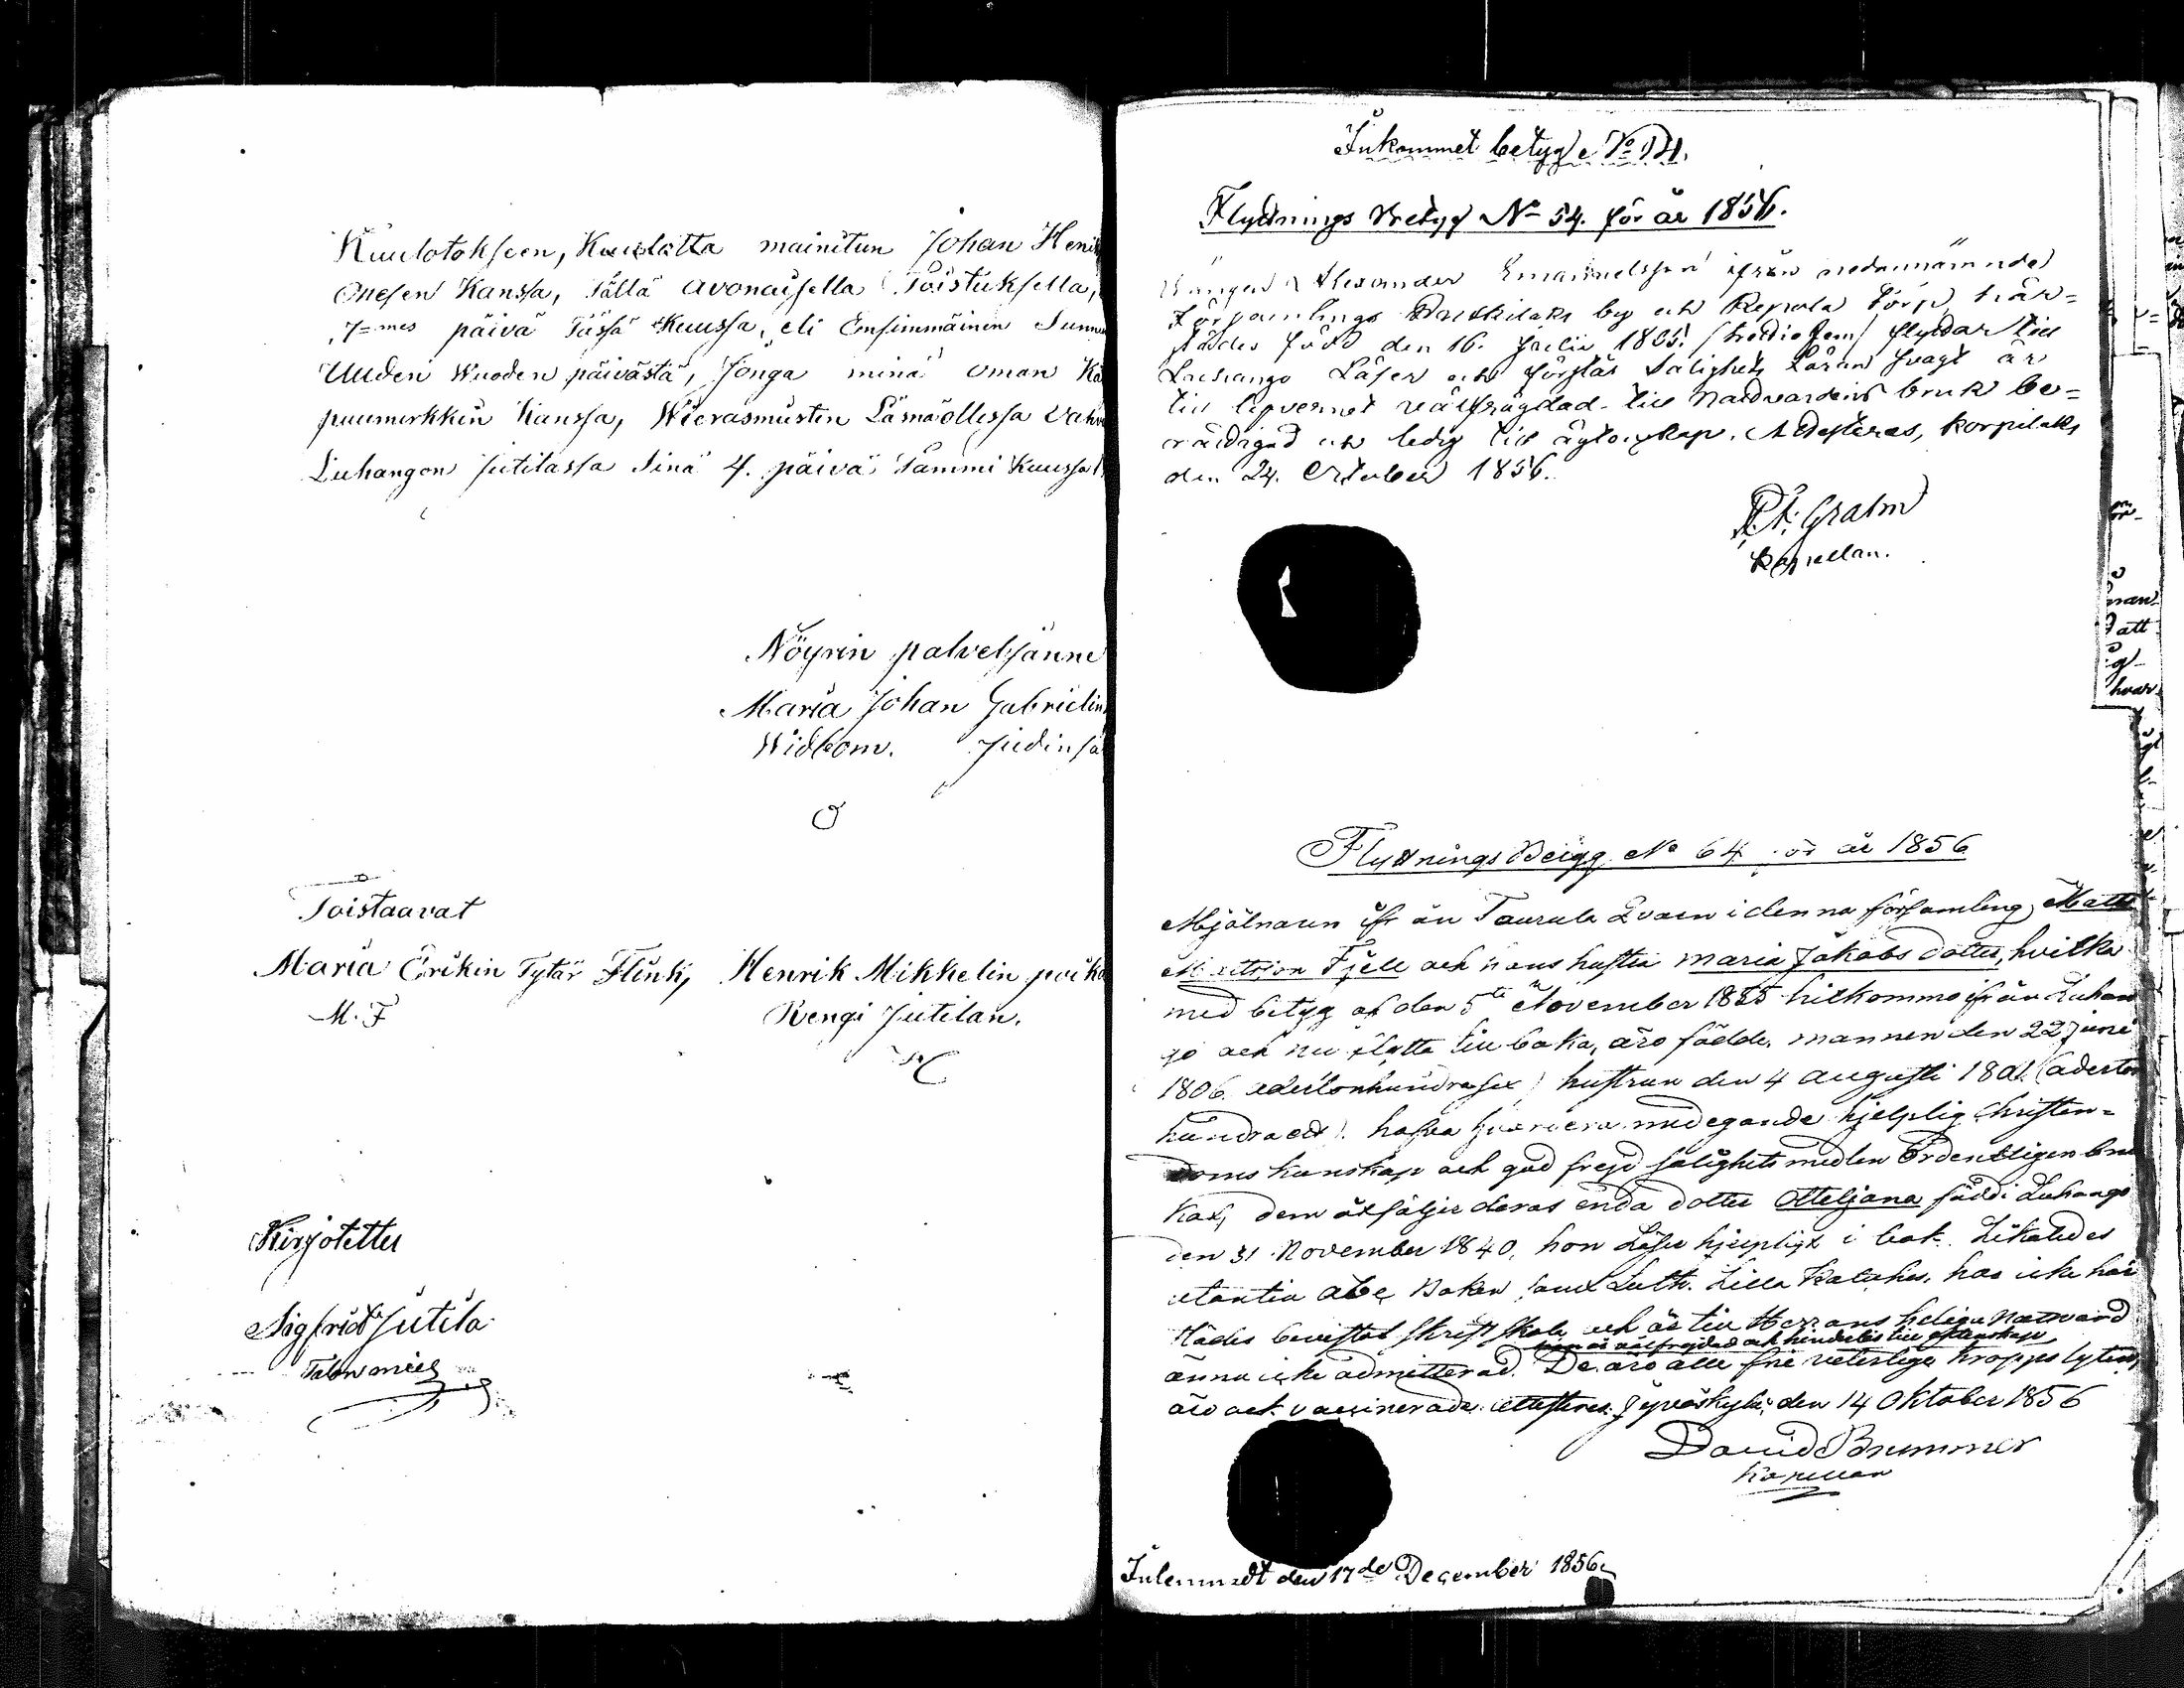 Kuulotokseen, Kuulotta mainitun Johan Henri
Onesen Kanssa, Tällä avonaisella Toistuksella,
7=mes päivä Tässä Kuussa, eli Ensimmäinen Sunnu
Uuden Wuoden päivästä, Jonga minä oman Kä
puumerkkin Kanssa, Wierasmiesten Läsnäollessa vahv
Luhangon Jutilassa Sinä 4. päivä Tammi Kuussa
Nöyrin palvelijanne
Maria Johan Gabrielin
Widbom. Judinsa
Toistaavat
Maria Erikin Tytär Flink, Henrik Mikkelin poika
M. F Rengi Jutilan.
Kirjotettu
Sigfrid Jutila
Talon mies
Inkommet betyg
Flyttnings Betyg No 54. för år 1856.
Drängen Alexander Emanuelsson ifrån nedannämnde
Församlings by och Repola Torp, här=
städes född den 16. Julii flyttar till
Luhango Läser och förstår Salighets Läran svagt är
till lefvernet välfrägdad till Nattvardens bruk be=
rättigad och ledig till ägtenskap. Attesteras, Korpilaks
den 24. October 1856.
Grahn
Kapellan.
Flyttnings Betyg No 64 för år 1856
Mjölnaren ifrån Taurula Qvarn i denna församling Matts
Mattsson Fjell och hans hustru Maria Jakobs dotter, hvilka
med betyg af den 5te November 1855 hitkommo ifrån Luhan
go och nu flytta tillbaka, äro födde, mannen den 22 Juni
1806. adertonhundrasex) hustrun den 4 Augusti 1801 (aderton
hundraett). hafva hvardera nödegande hjelplig Christen=
doms kunskap och god frejd salighets medlen Ordentligen bru
kat, dem åtföljer deras enda dotter Otteljana född i Luhango
den 31 November 1840, hon Läser hjelpligt i bok. Likaledes
utantill abc Boken samt Luth. Lilla Kateches. har icke här
städes bevistat Skriftskola och är till Herrans heliga Nattvard
hon är välfrejdad och hinderlös till äktenskap
ännu icke admitterad. De äro alla frie veterliga kropps lyten,
äro ock vaccinerade. attesteras. Jyväskylä den 14 Oktober 1856
David Brummer
Kapellan
Inlemnadt den 17de December 1856